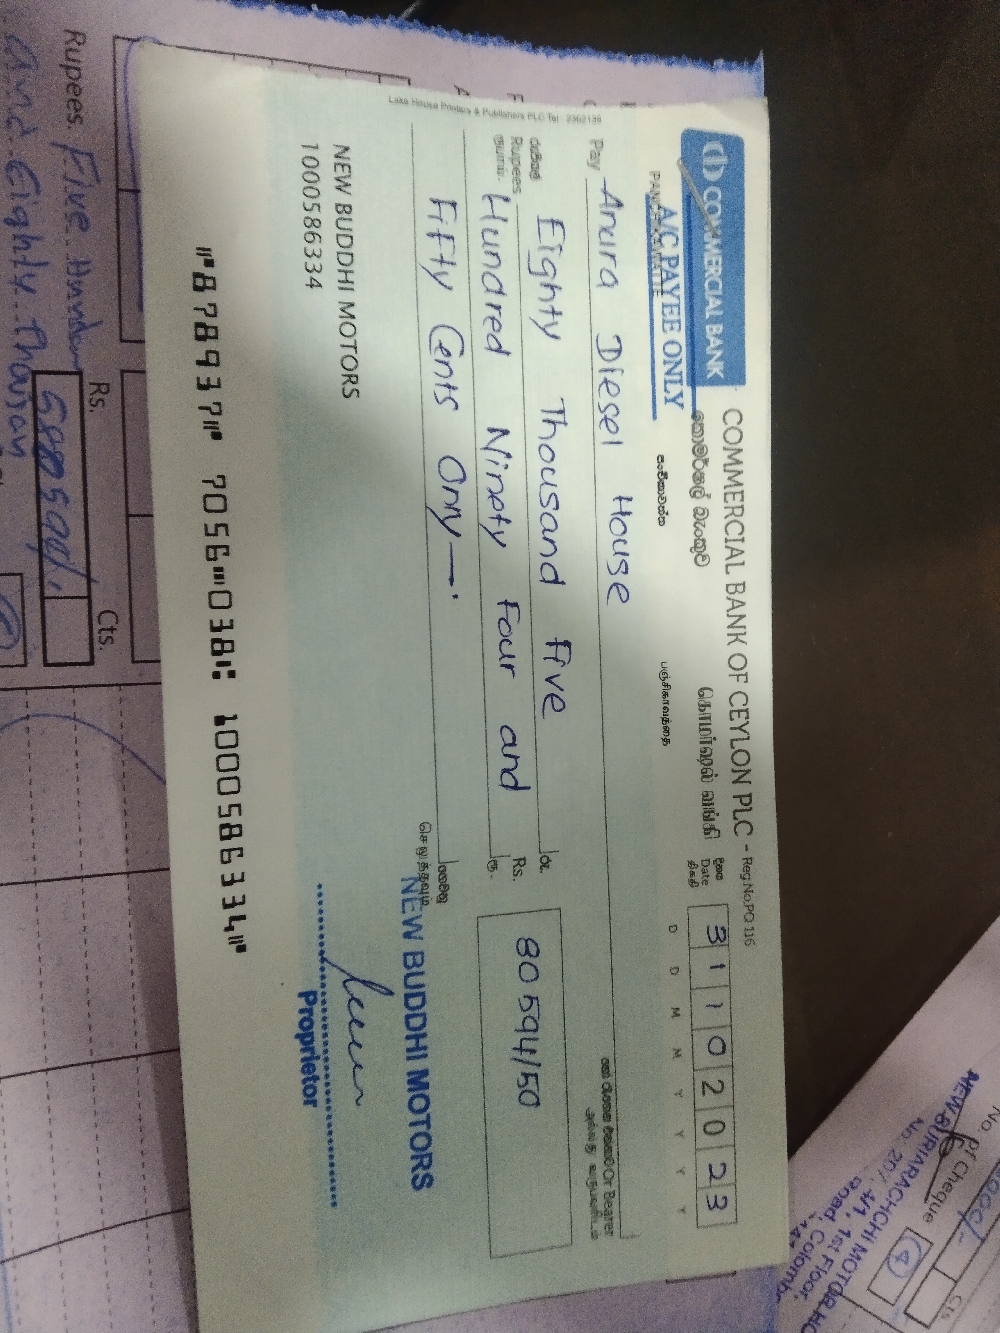 COMMERCIAL BANK
COMMERCIAL BANK OF CEYLON PLC - Reg No.PQ 116
කොමර්ෂල් බැංකුව
கொமர்ஷல் வங்கி
දිනය
Date
திகதி
31102023
D D M M Y Y Y Y
A/C PAYEE ONLY
PANCHIKAWATTE
පංචිකාවත්ත
பஞ்சிகாவத்தை
Pay Anura Diesel House
Or Bearer
රුපියල්
Rupees
ரூபாய்
Eighty Thousand Five
Hundred Ninety Four and
Fifty Cents Only
රු.
Rs.
ரூ.
80 594/50
NEW BUDDHI MOTORS
1000586334
NEW BUDDHI MOTORS
Proprietor
Lake House Printers & Publishers PLC Tel : 2362139
⑈878937⑈ 7056⑉038⑆ 1000586334⑈
Rupees. Five
and Eighty
Rs.
Cts.
No. of Cheque
NEW BURIARACHCHI MOTOR
No. 207, 4/1, 1st Floor,
Road, Colombo
Cts